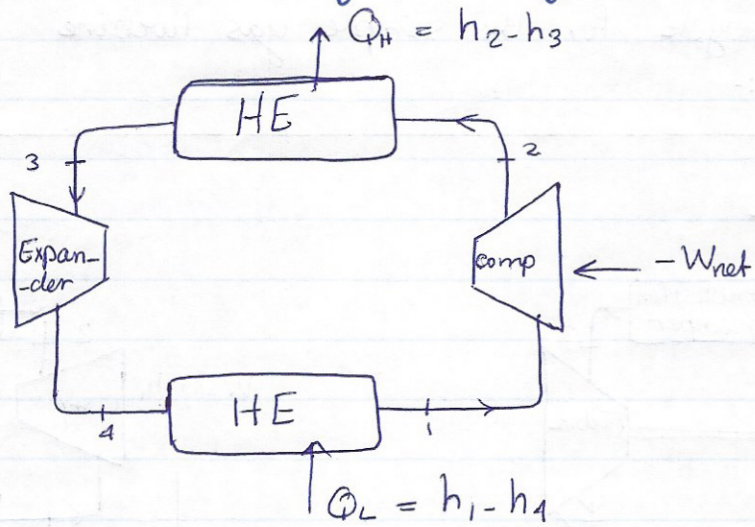 Q_H = h_2 - h_3
HE
3
2
Expan-
-der
comp
- W_net
HE
4
1
Q_L = h_1 - h_4